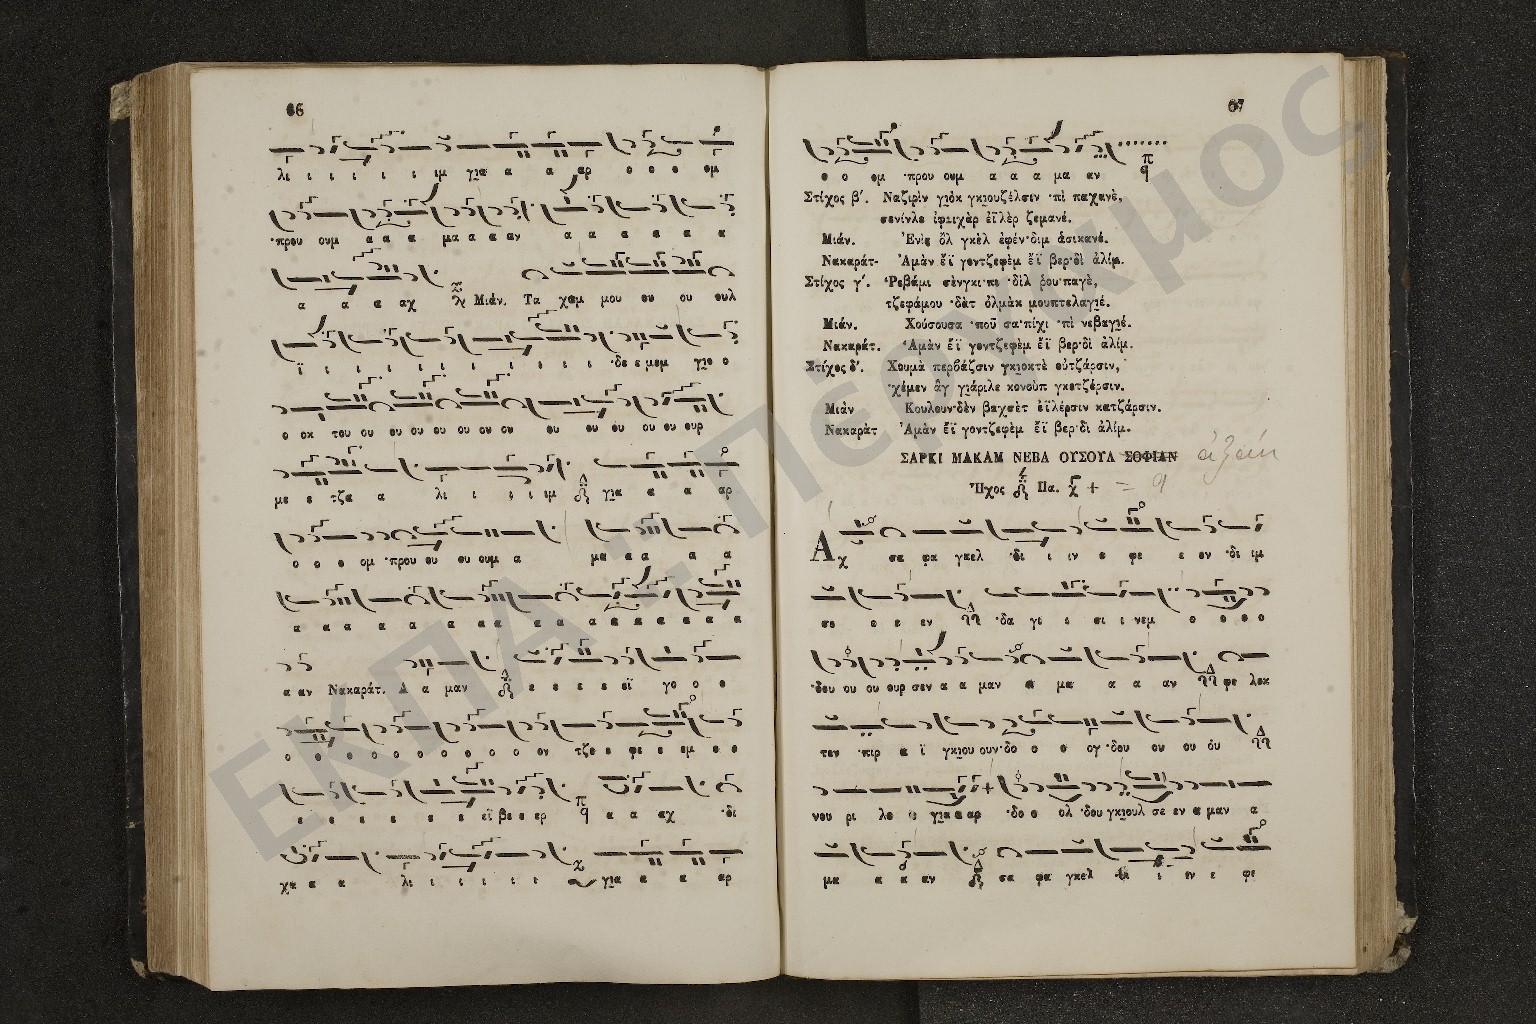 66
λι ι ι ι ι ιμ για α α αρ ο ο ο ομ
·πρου ουμ α α α μα α α αν α α α α α α
α α α αχ Μιάν. Τα χαμ μου ου ου ουλ
ϊ ι ι ι ι ι ι ι ι ι ι ·δε ε μεμ γιο ο
ο οκ του ου ου ου ου ου ου ου ου ου ου ου ουρ
με ε τζα α λι ι ι ι ιμ για α α αρ
ο ο ο ομ ·πρου ου ου ουμ α μα α α α α
α α α α α α α α α α α α α α α
α αν Νακαράτ. Α α μαν ε ε ε ε εϊ γο ο ο
ο ο ο ο ο ο ο ο ο ο ον τζε ε φε ε εμ ε ε
ε ε ε ε ε ε εϊ βε ε ερ α α αχ ·δι
χα α α λι ι ι ι ι ι για α α αρ
67
ο ο ομ ·πρου ουμ α α α μα αν
Στίχος β΄. Ναζιρὶν γιὸκ γκιουζέλσιν ·πὶ παχανὲ,
σενίνλε ἰφτιχὰρ ἐϊλὲρ ζεμανέ.
Μιάν. Ἐνὶς ὂλ γκὲλ ἐφέν·διμ ἀσικανέ.
Νακαράτ- Ἀμὰν ἔϊ γοντζεφὲμ ἔϊ βερ·δὶ ἀλίμ.
Στίχος γ΄. Ῥεβάμι σὲνγκι·πι ·δὶλ ῥου·παγὲ,
τζεφάμου ·δὰτ ὀλμὰκ μουπτελαγιέ.
Μιάν. Χούσουσα ·ποῦ σα·πίχι ·πὶ νεβαγιέ.
Νακαράτ. Ἀμὰν ἔϊ γοντζεφὲμ ἔϊ βερ·δὶ ἀλίμ.
Στίχος δ΄. Χουμὰ περβάζσιν γκιοκτὲ οὐτζάρσιν,
·χέμεν ἂγ γιάριλε κονοὺπ γκετζέρσιν.
Μιάν Κουλουν·δὲν βαχσὲτ ἐϊλέρσιν κατζάρσιν.
Νακαρὰτ Ἀμὰν ἔϊ γοντζεφὲμ ἔϊ βερ·δὶ ἀλίμ.
ΣΑΡΚΙ ΜΑΚΑΜ ΝΕΒΑ ΟΥΣΟΥΛ ΣΟΦΙΑΝ
Ἦχος Πα.
Αχ σα φα γκελ ·δι ι ιν ε φε ε εν ·δι ιμ
σε ε ε εν ·δα γι ι σι ι νεμ ο ο ο ο
·δου ου ου ουρ σεν α α μαν α μα α α αν φε λεκ
τεν ·πιρ α ϊ γκιου ουν·δο ο ο ογ ·δου ου ου ου
νου ρι λε ε για α αρ ·δο ο ολ ·δου γκιουλ σε εν α μαν α
μα α α αν σα φα γκελ ·δι ι εν ε φε
ΕΚΠΑ ... Πέργαμος